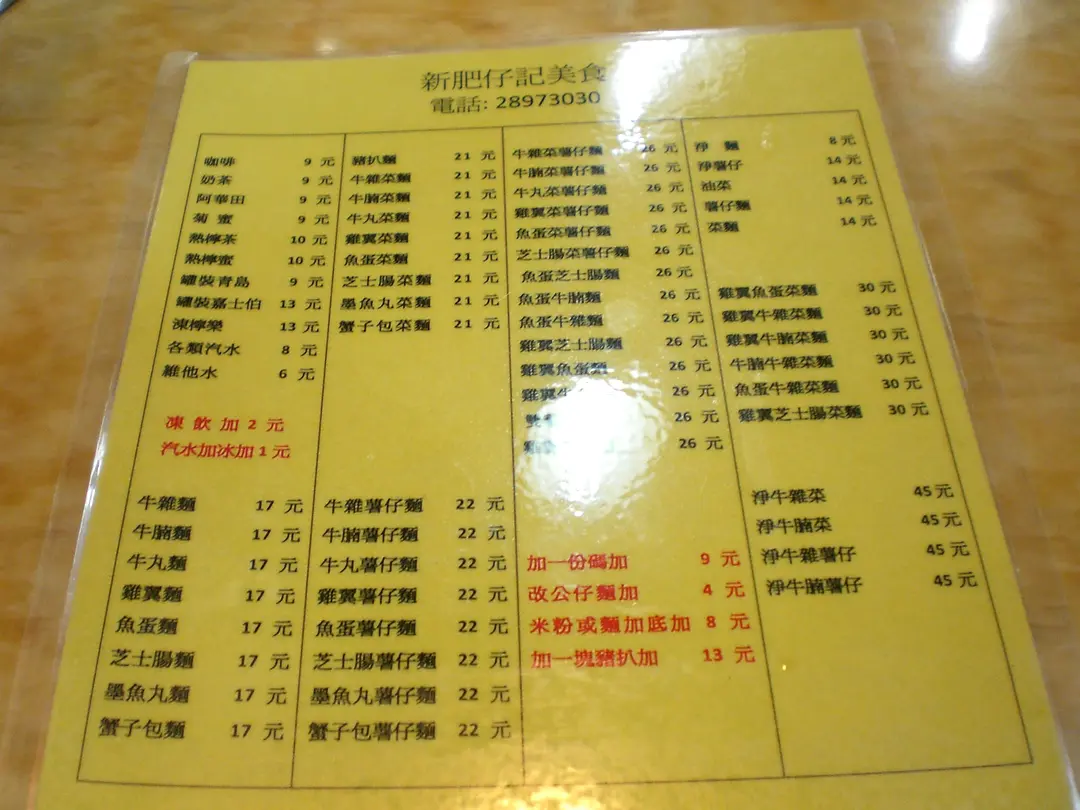 新肥仔記美食
電話: 28973030
咖啡 9 元
奶茶 9 元
阿華田 9 元
菊 蜜 9 元
熱檸茶 10 元
熱檸蜜 10 元
罐裝青島 9 元
罐裝嘉士伯 13 元
凍檸樂 13 元
各類汽水 8 元
維他水 6 元
凍 飲 加 2 元
汽水加冰加 1 元
牛雜麵 17 元
牛腩麵 17 元
牛丸麵 17 元
雞翼麵 17 元
魚蛋麵 17 元
芝士腸麵 17 元
墨魚丸麵 17 元
蟹子包麵 17 元
豬扒麵 21 元
牛雜菜麵 21 元
牛腩菜麵 21 元
牛丸菜麵 21 元
雞翼菜麵 21 元
魚蛋菜麵 21 元
芝士腸菜麵 21 元
墨魚丸菜麵 21 元
蟹子包菜麵 21 元
牛雜薯仔麵 22 元
牛腩薯仔麵 22 元
牛丸薯仔麵 22 元
雞翼薯仔麵 22 元
魚蛋薯仔麵 22 元
芝士腸薯仔麵 22 元
墨魚丸薯仔麵 22 元
蟹子包薯仔麵 22 元
牛雜菜薯仔麵 26 元
牛腩菜薯仔麵 26 元
牛丸菜薯仔麵 26 元
雞翼菜薯仔麵 26 元
魚蛋菜薯仔麵 26 元
芝士腸菜薯仔麵 26 元
魚蛋芝士腸麵 26 元
魚蛋牛腩麵 26 元
魚蛋牛雜麵 26 元
雞翼芝士腸麵 26 元
雞翼魚蛋麵 26 元
雞翼牛 26 元
26 元
26 元
加一份碼加 9 元
改公仔麵加 4 元
米粉或麵加底加 8 元
加一塊豬扒加 13 元
淨 麵 8 元
淨薯仔 14 元
油菜 14 元
薯仔麵 14 元
菜麵 14 元
雞翼魚蛋菜麵 30 元
雞翼牛雜菜麵 30 元
雞翼牛腩菜麵 30 元
牛腩牛雜菜麵 30 元
魚蛋牛雜菜麵 30 元
雞翼芝士腸菜麵 30 元
淨牛雜菜 45 元
淨牛腩菜 45 元
淨牛雜薯仔 45 元
淨牛腩薯仔 45 元